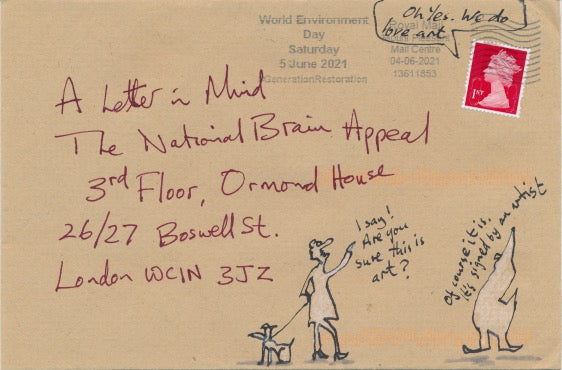 World Environment
Day
Saturday
5 June 2021
#GenerationRestoration
Royal Mail
Mail Centre
04-06-2021
13611853
Oh Yes. We do
love art
1ST
A Letter in Mind
The National Brain Appeal
3rd Floor, Ormond House
26/27 Boswell St.
London WC1N 3JZ
I say!
Are you
sure this is
art?
Of course it is.
It's signed by an artist